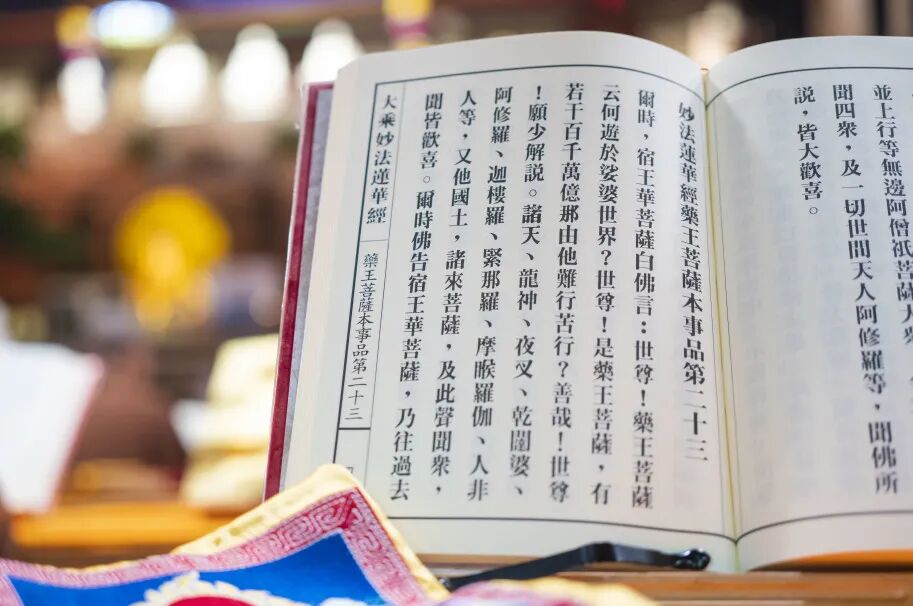 並上行等無邊阿僧祇菩薩大
聞四衆，及一切世間天人阿修羅等，聞佛所
説，皆大歡喜。
妙法蓮華經藥王菩薩本事品第二十三
爾時，宿王華菩薩白佛言：世尊！藥王菩薩
云何遊於娑婆世界？世尊！是藥王菩薩，有
若干百千萬億那由他難行苦行？善哉！世尊
！願少解説。諸天、龍神、夜叉、乾闥婆、
阿修羅、迦樓羅、緊那羅、摩睺羅伽、人非
人等，又他國土，諸來菩薩，及此聲聞衆，
聞皆歡喜。爾時佛告宿王華菩薩，乃往過去
大乘妙法蓮華經
藥王菩薩本事品第二十三